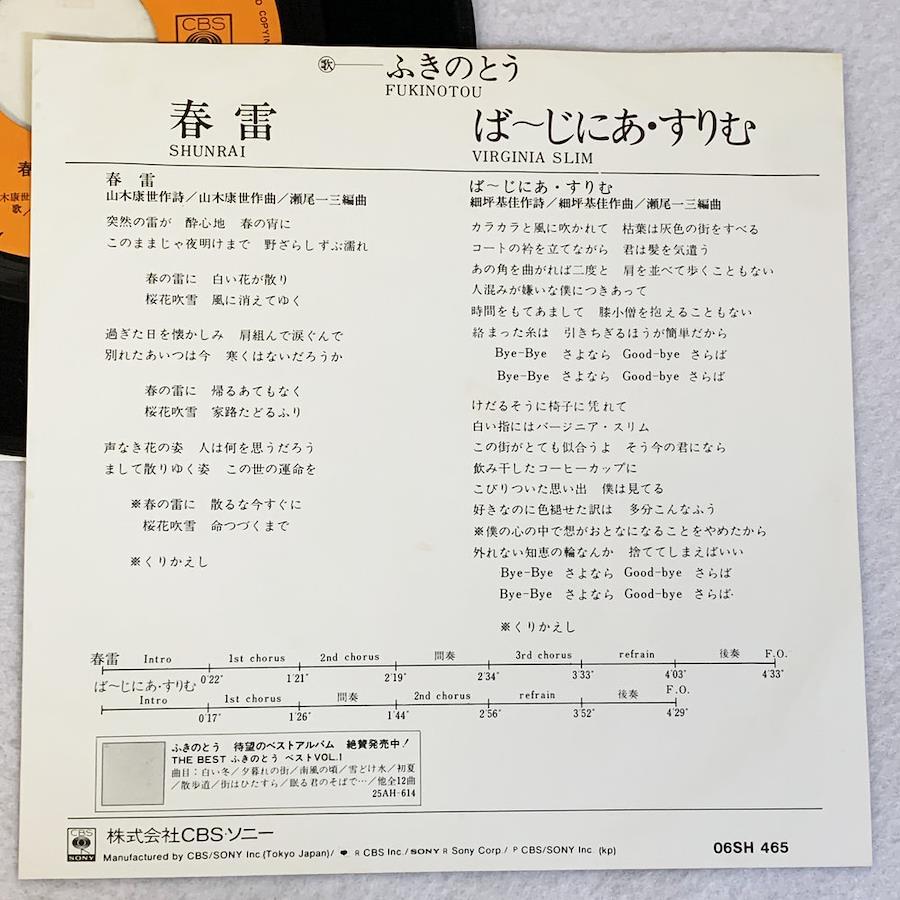 CBS
D COPYIN
㊙歌 ふきのとう
FUKINOTOU
春雷
SHUNRAI
ば〜じにあ・すりむ
VIRGINIA SLIM
春 雷
山木康世作詩／山木康世作曲／瀬尾一三編曲
突然の雷が 酔心地 春の宵に
このままじゃ夜明けまで 野ざらしずぶ濡れ
春の雷に 白い花が散り
桜花吹雪 風に消えてゆく
過ぎた日を懐かしみ 肩組んで涙ぐんで
別れたあいつは今 寒くはないだろうか
春の雷に 帰るあてもなく
桜花吹雪 家路たどるふり
声なき花の姿 人は何を思うだろう
まして散りゆく姿 この世の運命を
※春の雷に 散るな今すぐに
桜花吹雪 命つづくまで
※くりかえし
ば〜じにあ・すりむ
細坪基佳作詩／細坪基佳作曲／瀬尾一三編曲
カラカラと風に吹かれて 枯葉は灰色の街をすべる
コートの衿を立てながら 君は髪を気遣う
あの角を曲がれば二度と 肩を並べて歩くこともない
人混みが嫌いな僕につきあって
時間をもてあまして 膝小僧を抱えることもない
絡まった糸は 引きちぎるほうが簡単だから
Bye-Bye さよなら Good-bye さらば
Bye-Bye さよなら Good-bye さらば
けだるそうに椅子に凭れて
白い指にはバージニア・スリム
この街がとても似合うよ そう今の君になら
飲み干したコーヒーカップに
こびりついた思い出 僕は見てる
好きなのに色褪せた訳は 多分こんなふう
※僕の心の中で想がおとなになることをやめたから
外れない知恵の輪なんか 捨ててしまえばいい
Bye-Bye さよなら Good-bye さらば
Bye-Bye さよなら Good-bye さらば
※くりかえし
春雷 Intro 1st chorus 2nd chorus 間奏 3rd chorus refrain 後奏 F.O.
0'22" 1'21" 2'19" 2'34" 3'33" 4'03" 4'33"
ば〜じにあ・すりむ
Intro 1st chorus 間奏 2nd chorus refrain 後奏 F.O.
0'17" 1'26" 1'44" 2'56" 3'52" 4'29"
ふきのとう 待望のベストアルバム 絶賛発売中！
THE BEST ふきのとう ベストVOL.1
曲目：白い冬／夕暮れの街／南風の頃／雪どけ水／初夏
／散歩道／街はひたすら／眠る君のそばで…／他全12曲
25AH-614
CBS
SONY
株式会社CBS・ソニー
Manufactured by CBS/SONY Inc.(Tokyo Japan)/ R CBS Inc./ SONY R Sony Corp./ P CBS/SONY Inc. (kp)
06SH 465